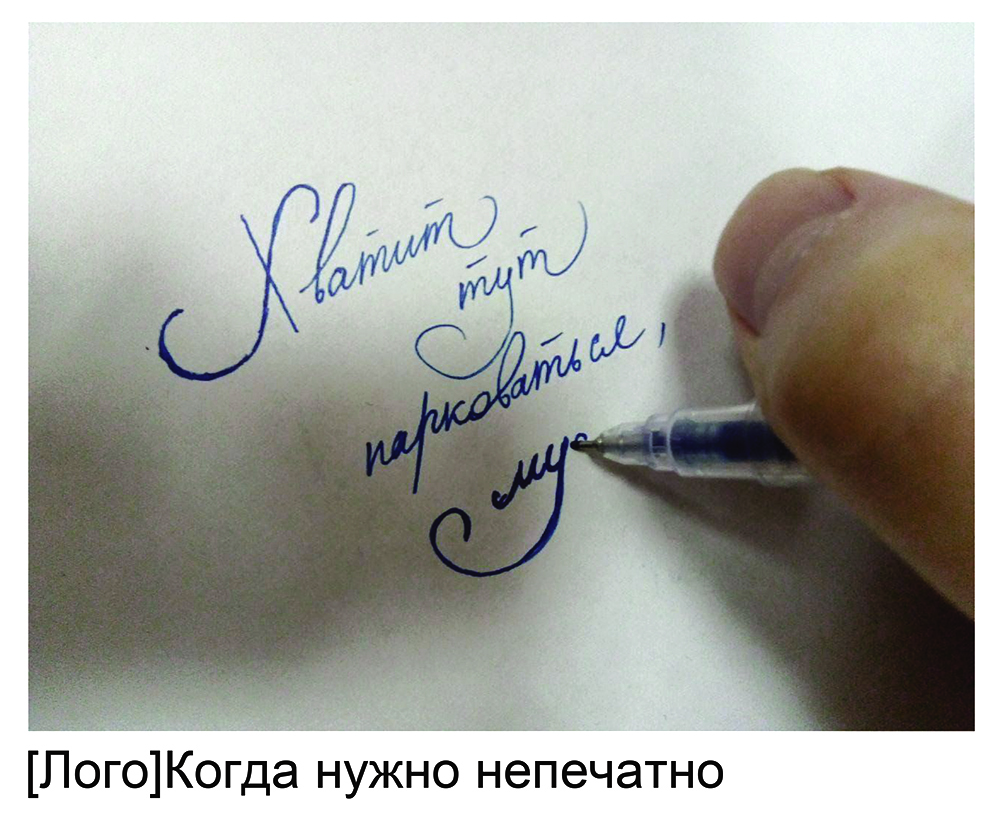 Хватит
тут
парковаться,
му
[Лого]Когда нужно непечатно